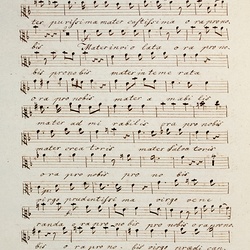 ter purissima mater castissima o ra pro no
bis Mater inviolata o ra pro no
bis pro no bis mater inteme rata
o ra pro nobis mater a mabilis
mater ad mi rabilis ora pro nobis
mater crea toris mater salva toris
o ra pro nobis pro no bis
virgo prudentissi ma virgo vene
randa o ra pro no bis pro nobis o ra pro no
bis o ra pro no bis virgo praedi can